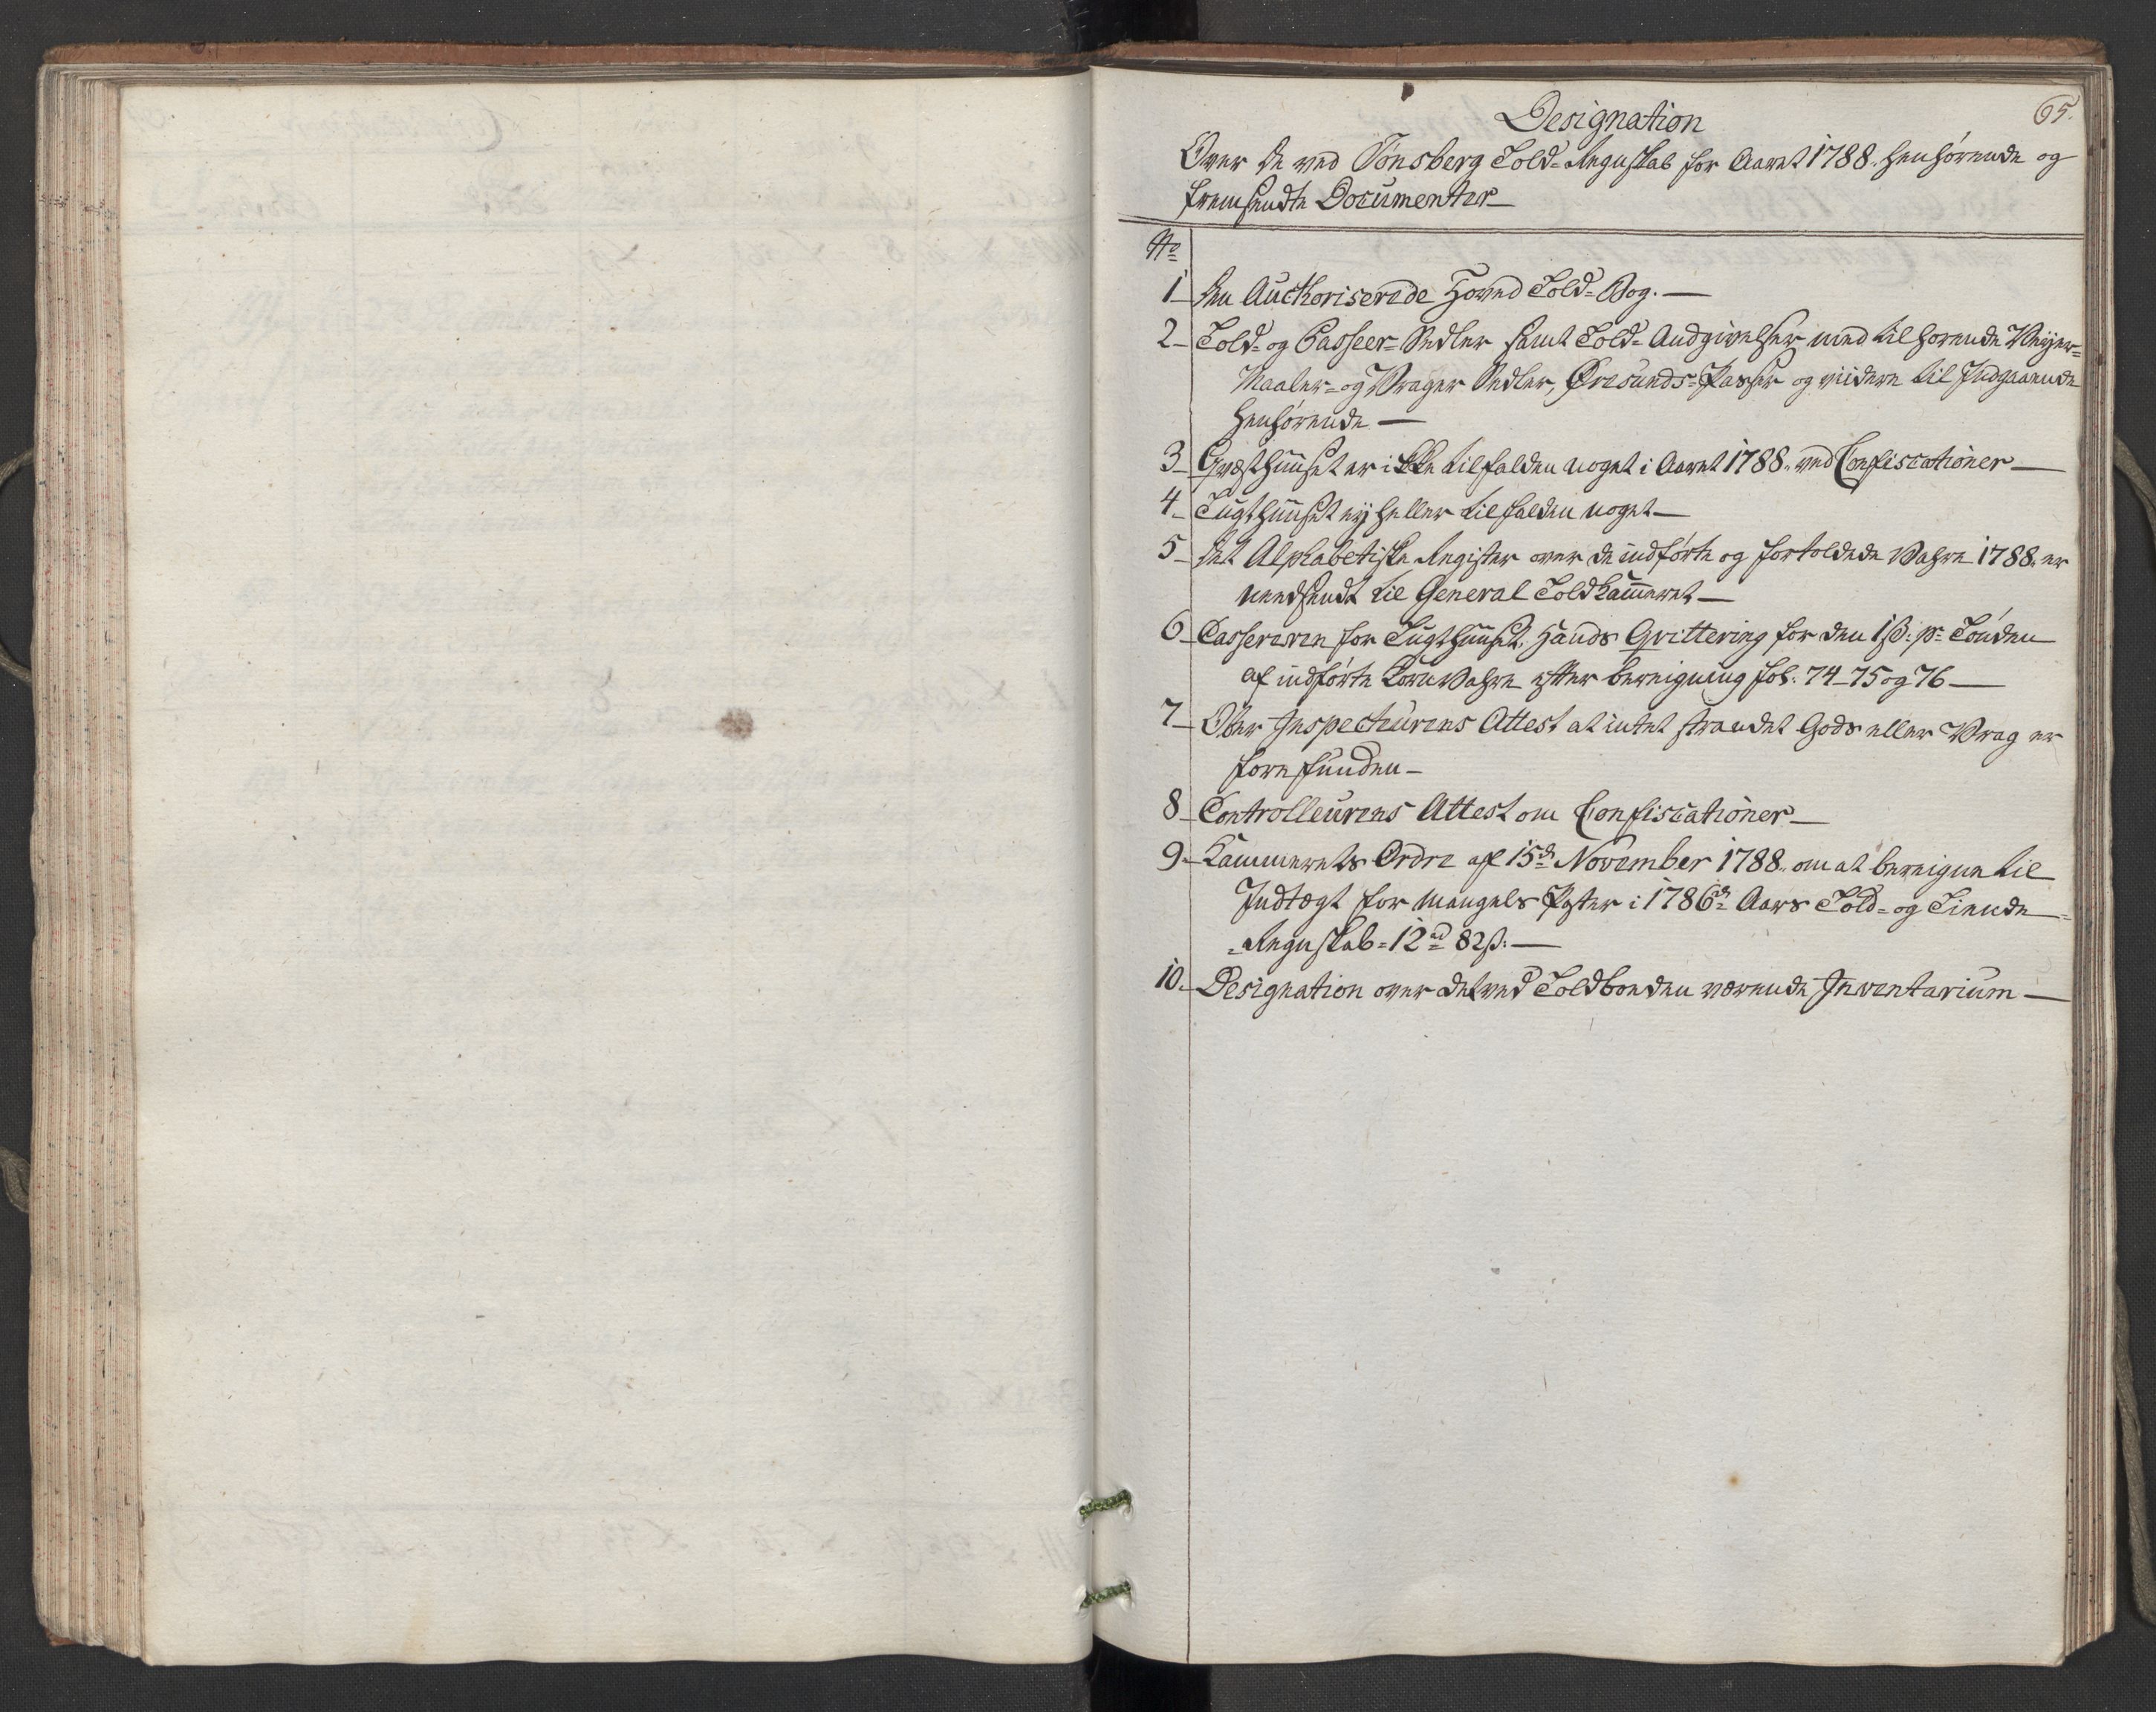 95.
Designation
Over de ved Tønsberg Told-Regnskab for Aaret 1788. henhørende og
fremsendte Documenter
No
1 Den Authoriserede Hoved Told-Bog.
2 Told- og Passeer-Sedler samt Told-Andgivelser med tilhørende Veyer-
Maaler- og Vrager Sedler, Øresunds-Passer og viidere til Indgaaende
henhørende
3 Qvæsthuuset er ikke tilfalden noget i Aaret 1788. ved Confiscationer
4 Tugthuuset ej heller tilfalden noget
5 Det Alphabetiske Register over de indførte og fortoldede Vahre 1788. er
needsendt til General Toldkammeret
6 Cassereren for Tugthuuset, Hands Qvittering for den 1 ß: pr Tønden
af indførte KornVahre efter bereigning fol: 74-75 og 76
7 Ober Inspecteurens Attest at intet strandet Gods eller Vrag er
forefunden
8 Controlleurens Attest om Confiscationer
9 Kammerets Ordre af 15de November 1788. om at bereigne til
Indtægt for mangels Poster i 1786de Aars Told- og Tiende-
-Regnskab = 12 rd 82 ß:
10. Designation over det ved Toldboeden værende Inventarium